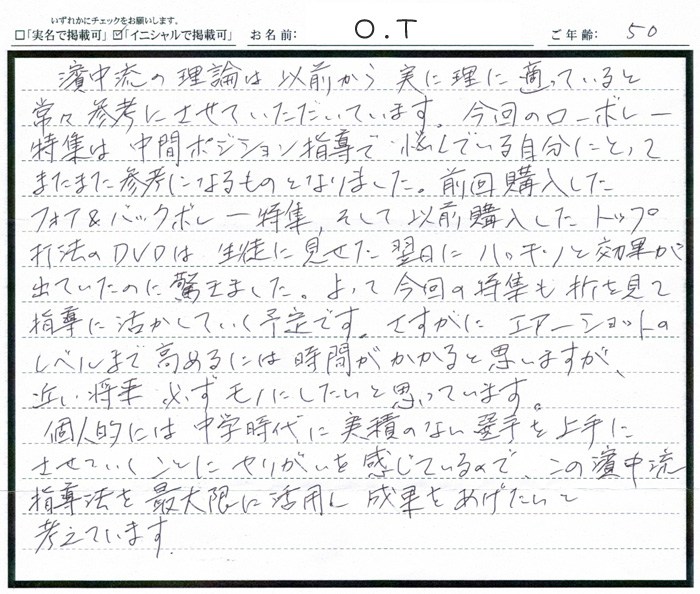 いずれかにチェックをお願いします。
□「実名で掲載可」☑「イニシャルで掲載可」 お名前: O.T ご年齢: 50
濱中流の理論は以前から実に理に適っていると
常々参考にさせていただいています。今回のローボレー
特集は中間ポジション指導で悩んでいる自分にとって
またまた参考になるものとなりました。前回購入した
フォア&バックボレー特集、そして以前購入したトップ
打法のDVDは生徒に見せた翌日にハッキリと効果が
出ていたのに驚きました。よって今回の特集も折を見て
指導に活かしていく予定です。さすがにエアーショットの
レベルまで高めるには時間がかかると思いますが、
近い将来必ずモノにしたいと思っています。
個人的には中学時代に実績のない選手を上手に
させていくことにやりがいを感じているので、この濱中流
指導法を最大限に活用し成果をあげたいと
考えています。